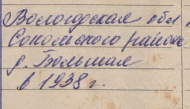 Вологодская обл
Сокольского района
д. Большая
в 1938 г.